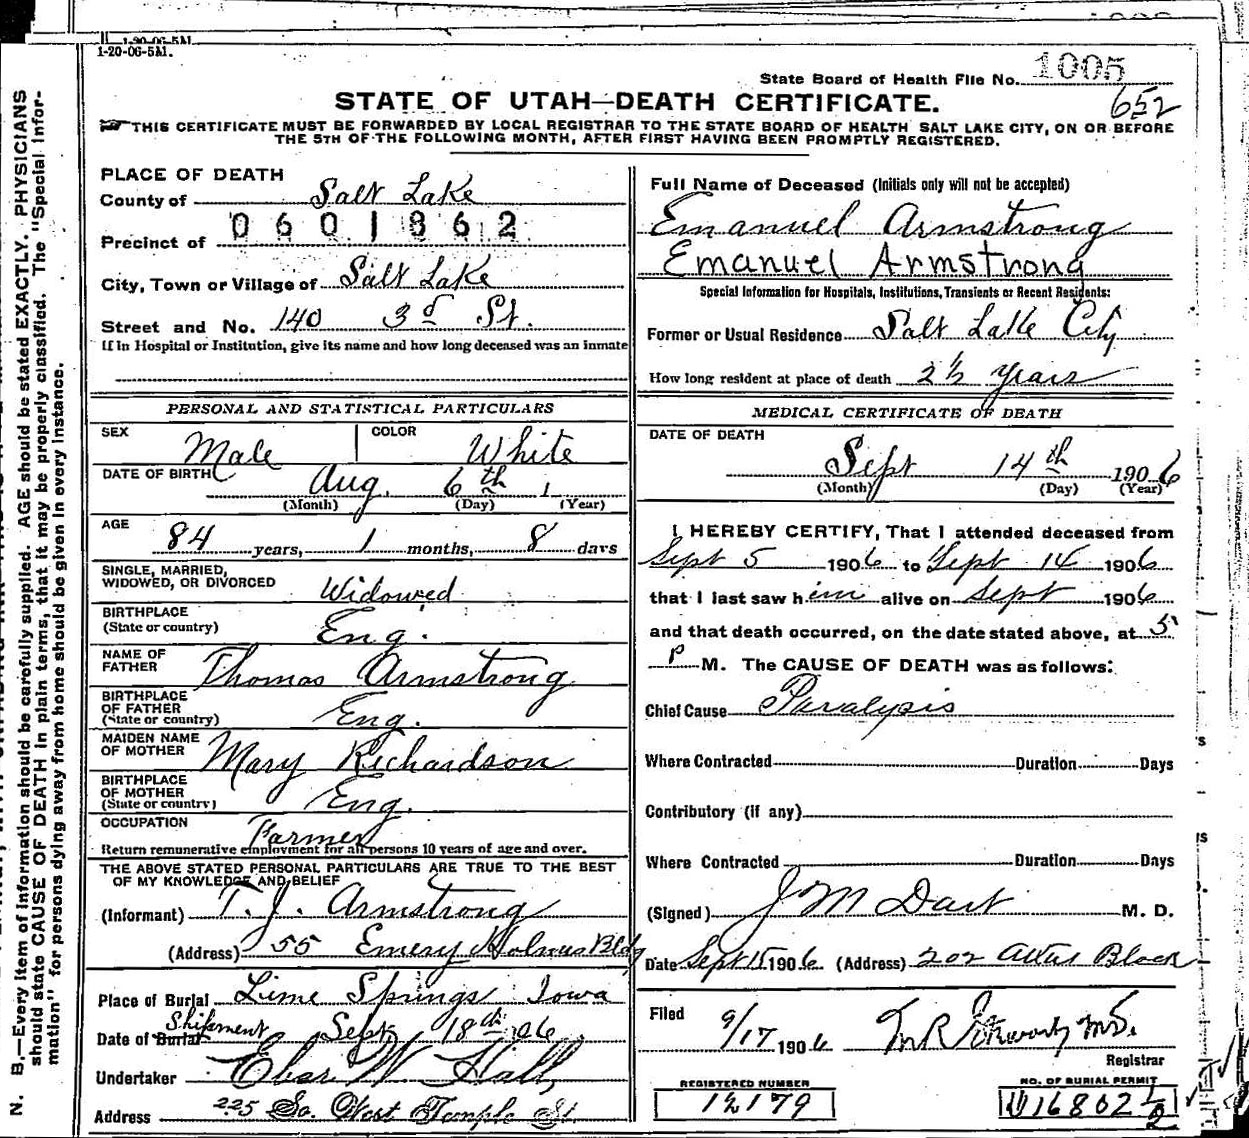 1-20-06-5M.
State Board of Health File No. 1005
652
STATE OF UTAH—DEATH CERTIFICATE.
THIS CERTIFICATE MUST BE FORWARDED BY LOCAL REGISTRAR TO THE STATE BOARD OF HEALTH SALT LAKE CITY, ON OR BEFORE
THE 5TH OF THE FOLLOWING MONTH, AFTER FIRST HAVING BEEN PROMPTLY REGISTERED.
PLACE OF DEATH
County of Salt Lake
Precinct of 0601862
City, Town or Village of Salt Lake
Street and No. 140 3d St.
If in Hospital or Institution, give its name and how long deceased was an inmate
Full Name of Deceased (Initials only will not be accepted)
Emanuel Armstrong
Emanuel Armstrong
Special Information for Hospitals, Institutions, Transients or Recent Residents:
Former or Usual Residence Salt Lake City
How long resident at place of death 2 1/2 years
PERSONAL AND STATISTICAL PARTICULARS
SEX Male COLOR White
DATE OF BIRTH Aug. 6th 1
(Month) (Day) (Year)
AGE 84 years, 1 months, 8 days
SINGLE, MARRIED,
WIDOWED, OR DIVORCED Widowed
BIRTHPLACE
(State or country) Eng.
NAME OF
FATHER Thomas Armstrong
BIRTHPLACE
OF FATHER
(State or country) Eng.
MAIDEN NAME
OF MOTHER Mary Richardson
BIRTHPLACE
OF MOTHER
(State or country) Eng.
OCCUPATION Farmer
Return remunerative employment for all persons 10 years of age and over.
THE ABOVE STATED PERSONAL PARTICULARS ARE TRUE TO THE BEST
OF MY KNOWLEDGE AND BELIEF
(Informant) T. J. Armstrong
(Address) 55 Emery Holmes Bldg
Place of Burial Lime Springs Iowa
Date of Burial Shipment Sept 18th 06
Undertaker Eber W. Hall
Address 225 So. West Temple St.
MEDICAL CERTIFICATE OF DEATH
DATE OF DEATH
Sept 14th 1906
(Month) (Day) (Year)
I HEREBY CERTIFY, That I attended deceased from
Sept 5 1906 to Sept 14 1906
that I last saw him alive on Sept 1906
and that death occurred, on the date stated above, at 5
P M. The CAUSE OF DEATH was as follows:
Chief Cause Paralysis
Where Contracted Duration Days
Contributory (if any)
Where Contracted Duration Days
(Signed) J M Dart M. D.
Date Sept 15 1906 (Address) 202 Atlas Block
Filed
9/17 1906 M.D.
Registrar
REGISTERED NUMBER
12179
NO. OF BURIAL PERMIT
U16802 1/2
N. B.—Every item of information should be carefully supplied. AGE should be stated EXACTLY. PHYSICIANS
should state CAUSE OF DEATH in plain terms, that it may be properly classified. The "Special Infor-
mation" for persons dying away from home should be given in every instance.